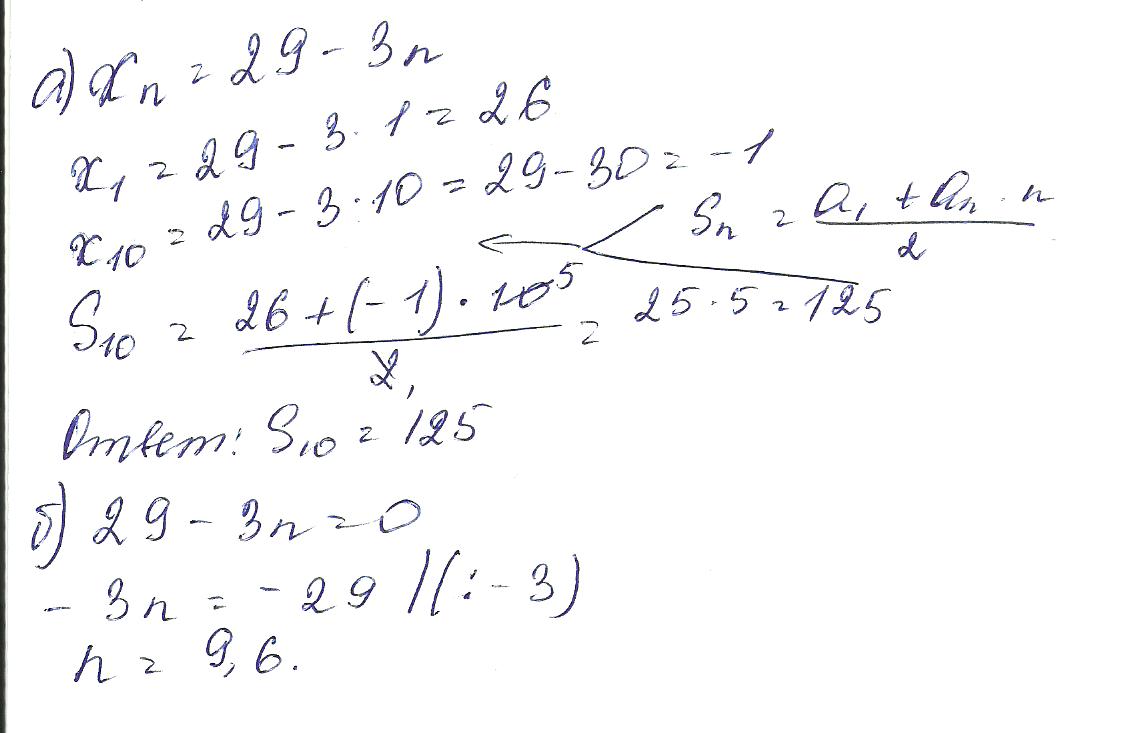 а) xₙ = 29 - 3n
x₁ = 29 - 3 · 1 = 26
x₁₀ = 29 - 3 · 10 = 29 - 30 = -1
Sₙ = a₁ + aₙ · n / 2
S₁₀ = 26 + (-1) · 10 5 / 2 1 = 25 · 5 = 125
Ответ: S₁₀ = 125
б) 29 - 3n = 0
- 3n = -29 |(: -3)
n = 9,6.